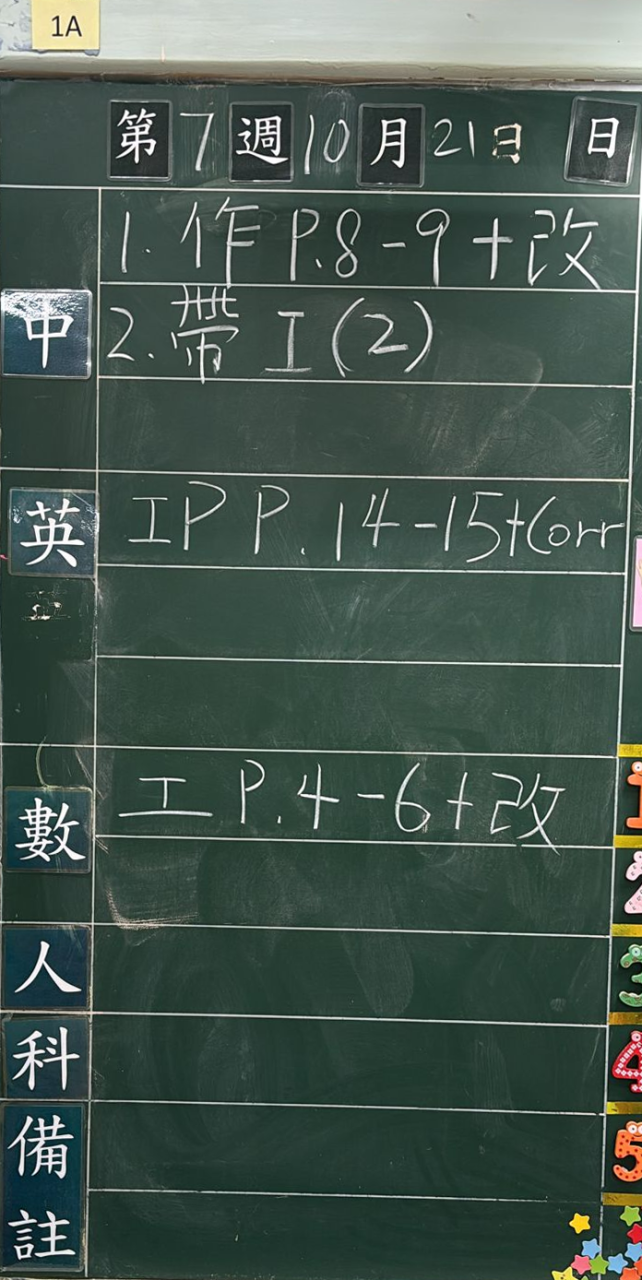 1A
第7週10月21日 日
中
1. 作 P.8-9+改
2. 帶 工(2)
英
IP P.14-15+Corr
數
工 P.4-6+改
人
科
備註
1
2
3
4
5